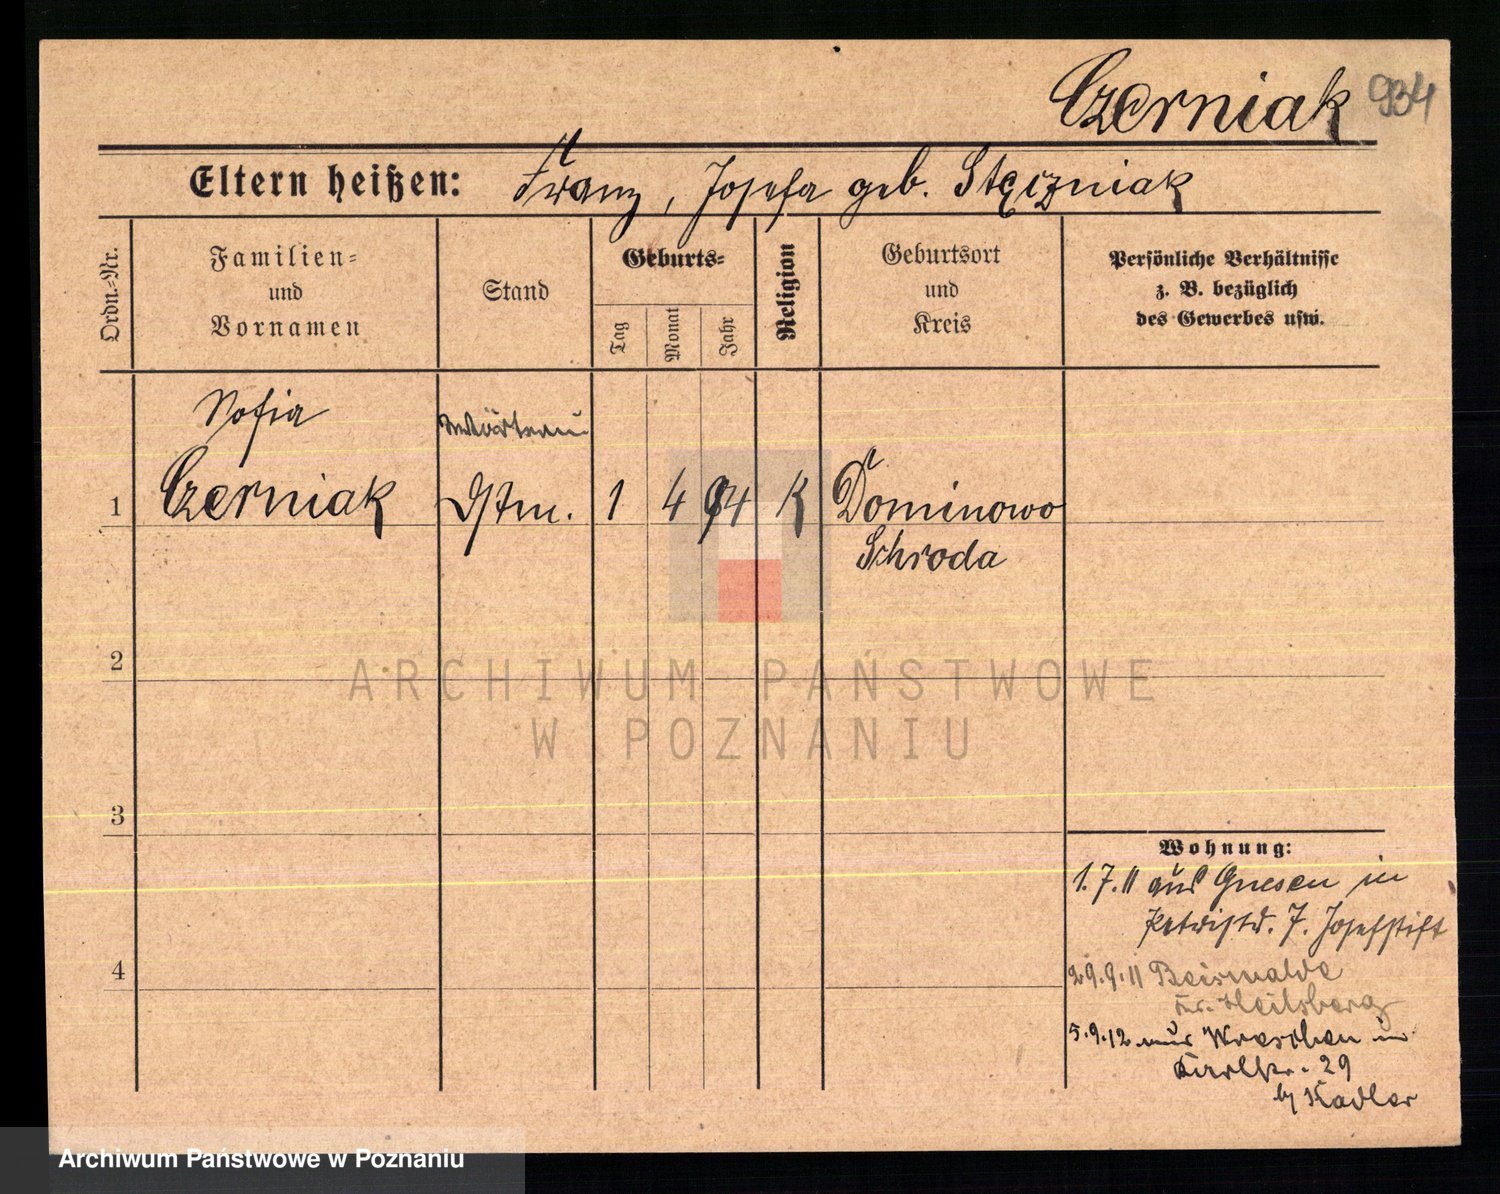 Czerniak 934
Eltern heißen: Franz, Josefa geb. Stęczniak
Ordn.-Nr.
Familien-
und
Vornamen
Stand
Geburts-
Tag
Monat
Jahr
Religion
Geburtsort
und
Kreis
Persönliche Verhältnisse
z. B. bezüglich
des Gewerbes usw.
Sofia
1 Czerniak Dstm. 1 4 94 K Dominowo
Schroda
2
3
4
Wohnung:
1.7.11 aus Gnesen in
Petristr. 7. Josefstift
29.9.11 Beiswalde
Kr. Heilsberg
5.9.12 aus Wreschen in
Karlstr. 29
by Kadler
ARCHIWUM PAŃSTWOWE
W POZNANIU
Archiwum Państwowe w Poznaniu